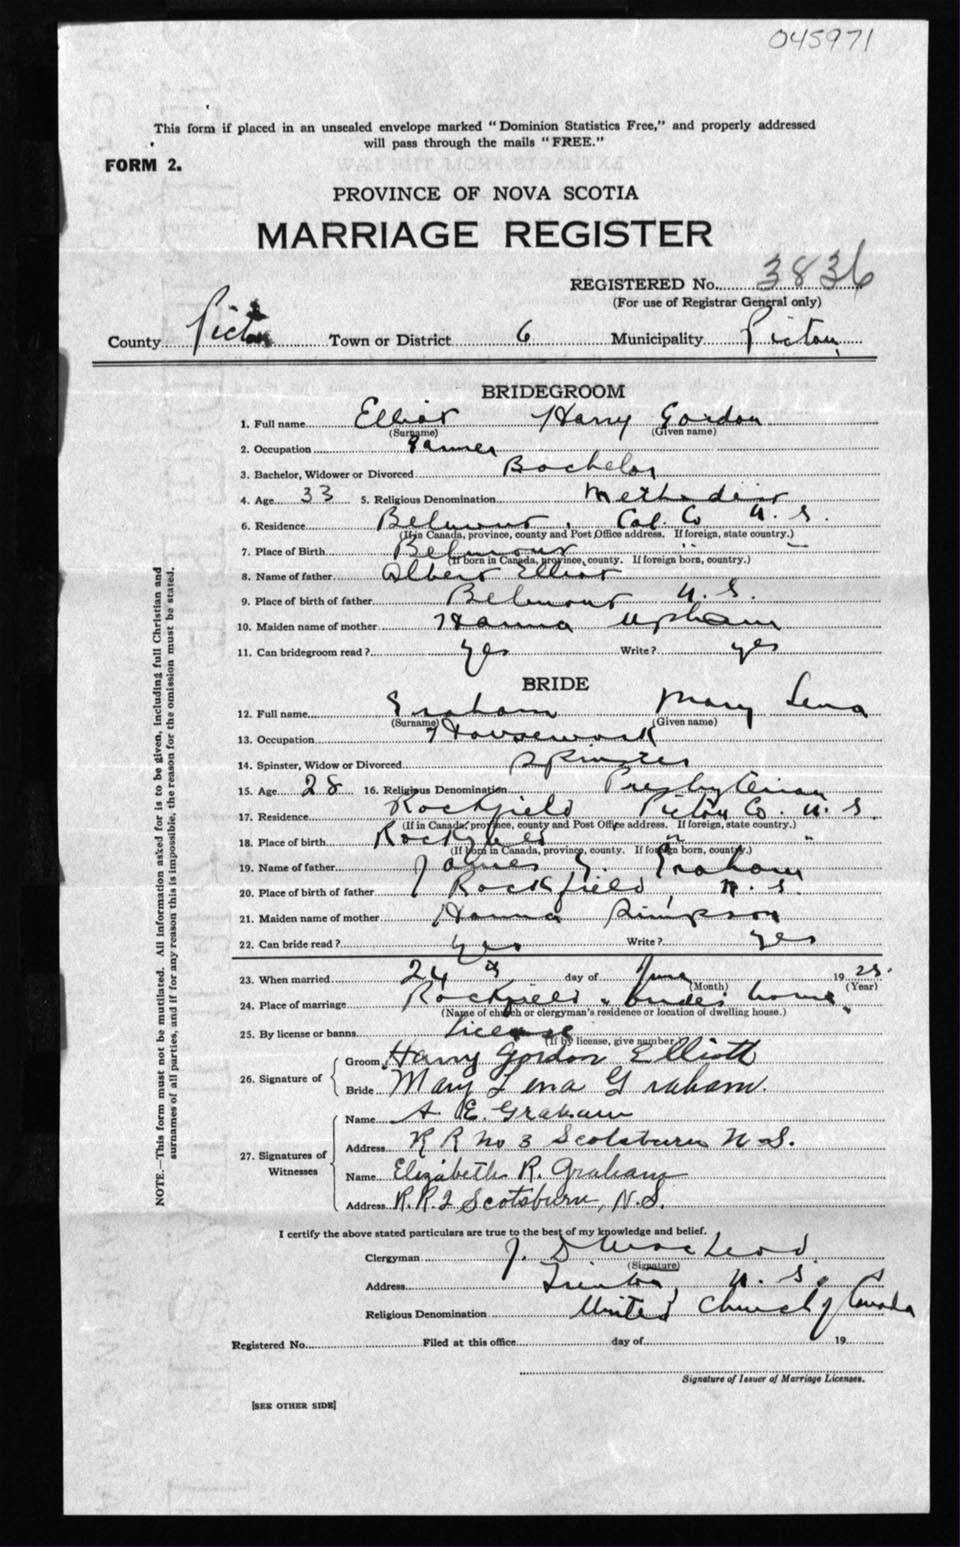 045971
This form if placed in an unsealed envelope marked "Dominion Statistics Free," and properly addressed
will pass through the mails "FREE."
FORM 2.
PROVINCE OF NOVA SCOTIA
MARRIAGE REGISTER
REGISTERED No. 3836
(For use of Registrar General only)
County Pictou Town or District 6 Municipality Pictou
BRIDEGROOM
1. Full name Elliot Harry Gordon
(Surname) (Given name)
2. Occupation Farmer
3. Bachelor, Widower or Divorced Bachelor
4. Age 33 5. Religious Denomination Methodist
6. Residence Belmont, Col. Co N. S.
(If in Canada, province, county and Post Office address. If foreign, state country.)
7. Place of Birth Belmont " "
(If born in Canada, province, county. If foreign born, country.)
8. Name of father Albert Elliot
9. Place of birth of father Belmont N. S.
10. Maiden name of mother Hanna Upham
11. Can bridegroom read? yes Write? yes
BRIDE
12. Full name Graham Mary Lena
(Surname) (Given name)
13. Occupation Housework
14. Spinster, Widow or Divorced Spinster
15. Age 28 16. Religious Denomination Presbyterian
17. Residence Rockfield Pictou Co. N. S.
(If in Canada, province, county and Post Office address. If foreign, state country.)
18. Place of birth Rockfield " "
(If born in Canada, province, county. If foreign born, country.)
19. Name of father James G. Graham
20. Place of birth of father Rockfield N. S.
21. Maiden name of mother Hanna Simpson
22. Can bride read? yes Write? yes
23. When married 24 day of June 19 25.
(Month) (Year)
24. Place of marriage Rockfield brides home
(Name of church or clergyman's residence or location of dwelling house.)
25. By license or banns License
(If by license, give number)
26. Signature of Groom Harry Gordon Elliott
Bride Mary Lena Graham
27. Signatures of Witnesses Name A E. Graham
Address R R No 3 Scotsburn N.S.
Name Elizabeth R. Graham
Address R.R.2 Scotsburn, N.S.
I certify the above stated particulars are true to the best of my knowledge and belief.
Clergyman J. D MacLeod
(Signature)
Address Trenton, N. S.
Religious Denomination United Church of Canada
Registered No. Filed at this office day of 19
Signature of Issuer of Marriage Licenses.
[SEE OTHER SIDE]
NOTE.—This form must not be mutilated. All information asked for is to be given, including full Christian and
surnames of all parties, and if for any reason this is impossible, the reason for the omission must be stated.